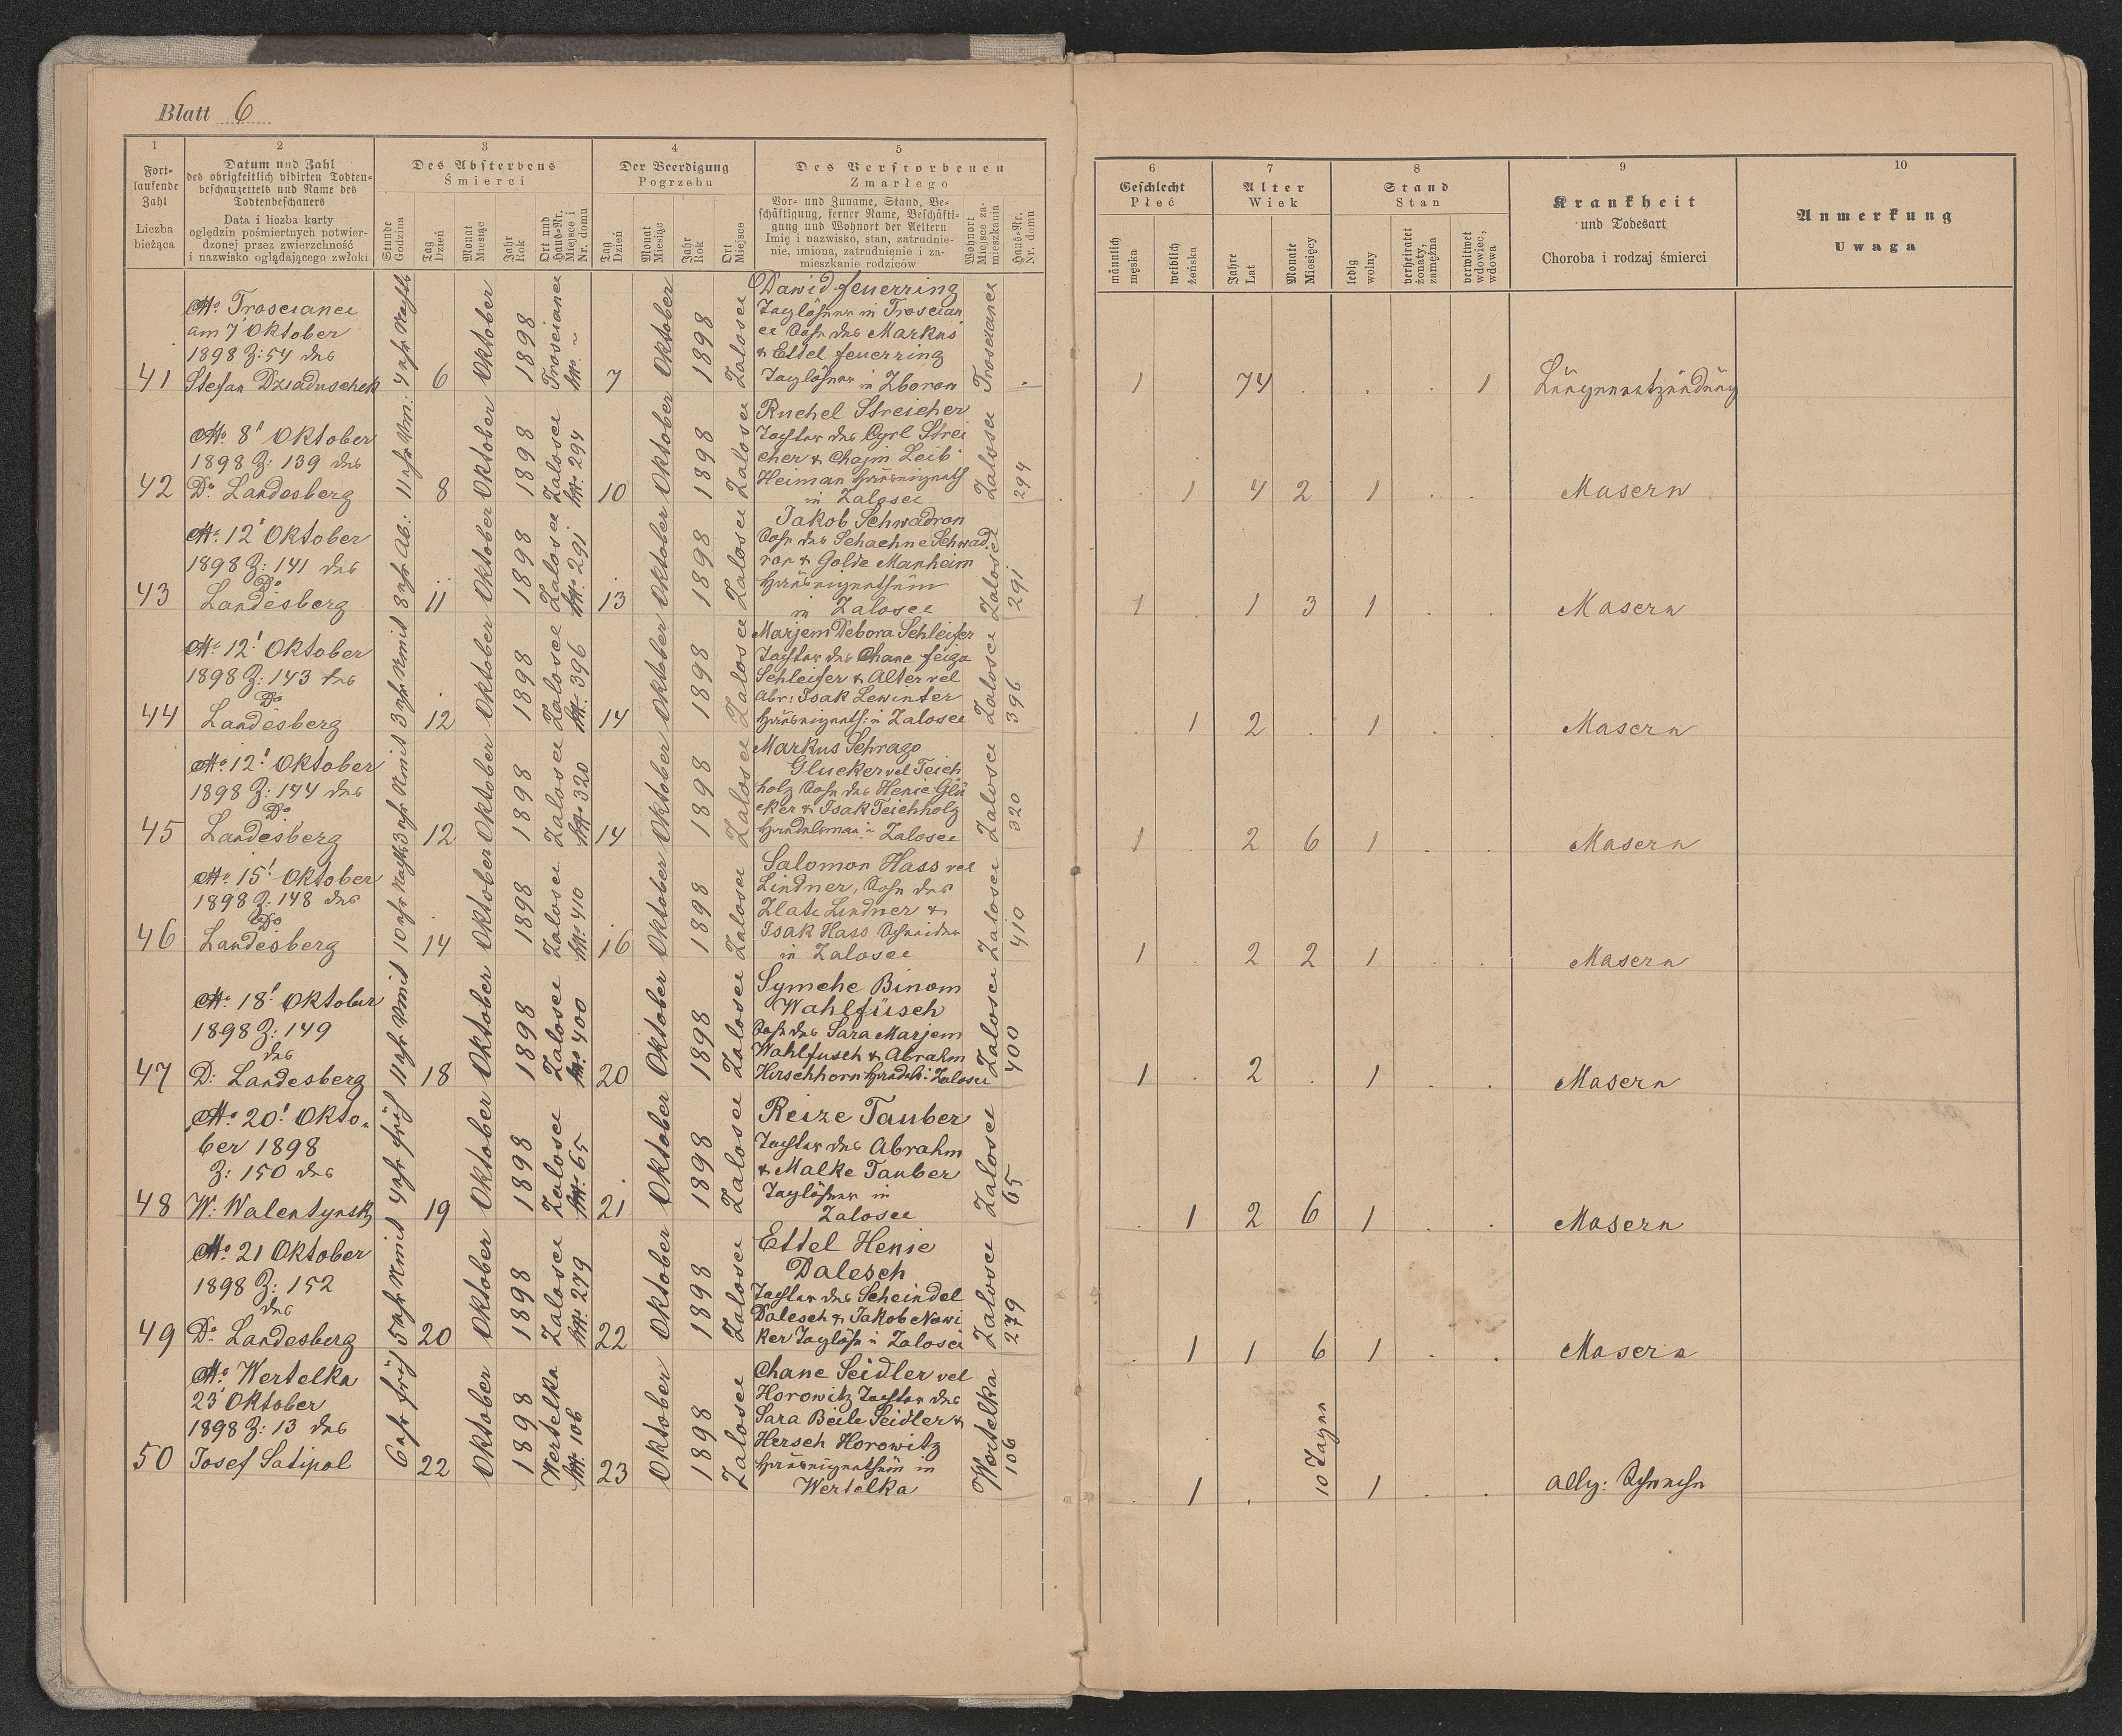 Blatt 6
1
2
3
4
5
Fort-
laufende
Zahl
Liczba
bieżąca
Datum und Zahl
des obrigkeitlich vidirten Todten-
beschauzettels und Name des
Todtenbeschauers
Data i liczba karty
oględzin pośmiertnych potwier-
dzonej przez zwierzchność
i nazwisko oglądającego zwłoki
Des Absterbens
Śmierci
Stunde
Godzina
Tag
Dzień
Monat
Miesiąc
Jahr
Rok
Ort und
Haus-Nr.
Miejsce i
Nr. domu
Der Beerdigung
Pogrzebu
Tag
Dzień
Monat
Miesiąc
Jahr
Rok
Ort
Miejsce
Des Verstorbenen
Zmarłego
Vor- und Zuname, Stand, Be-
schäftigung, ferner Name, Beschäfti-
gung und Wohnort der Aeltern
Imię i nazwisko, stan, zatrudnie-
nie, imiona, zatrudnienie i za-
mieszkanie rodziców
Wohnort
Miejsce za-
mieszkania
Haus-Nr.
Nr. domu
6
7
8
9
10
Geschlecht
Płeć
männlich
męska
weiblich
żeńska
Alter
Wiek
Jahre
Lat
Monate
Miesięcy
Stand
Stan
ledig
wolny
verheiratet
żonaty,
zamężna
verwitwet
wdowiec,
wdowa
Krankheit
und Todesart
Choroba i rodzaj śmierci
Anmerkung
Uwaga
41
Trosciance
am 7' Oktober
1898 Z: 54 des
Stefan Dziaduschek
4 uhr Nachts
6
Oktober
1898
Trosciance
7
Oktober
1898
Zalosce
Dawid Feuerring
Taglöhner in Troscian
ce Sohn des Markus
& Ettel Feuerring
Taglöhner in Zborow
Trosciance
1
74
1
Lungenentzündung
42
8' Oktober
1898 Z: 139 des
Dr. Landesberg
11 uhr Vm:
8
Oktober
1898
Zalosce
Nr. 294
10
Oktober
1898
Zalosce
Ruchel Streicher
Tochter des Cyrl Strei
cher & Chajm Leib
Heiman
in Zalosce
Zalosce
294
1
4
2
1
Masern
43
12' Oktober
1898 Z: 141 des
Dr
Landesberg
8 uhr Ab:
11
Oktober
1898
Zalosce
Nr. 291
13
Oktober
1898
Zalosce
Jakob Schwadron
Sohn des Schachne Schwad
ron & Golde Manheim
Hauseigenthüm
in Zalosce
Zalosce
291
1
1
3
1
Masern
44
12' Oktober
1898 Z: 143 des
Dr
Landesberg
3 uhr Nmit
12
Oktober
1898
Zalosce
Nr. 396
14
Oktober
1898
Zalosce
Marjem Debora Schleifer
Tochter des Chane Feiga
Schleifer & Alter vel
Abr: Isak Lewinter
Hauseigenth: in Zalosce
Zalosce
396
1
2
1
Masern
45
12' Oktober
1898 Z: 144 des
Dr
Landesberg
3 uhr Nmit
12
Oktober
1898
Zalosce
Nr. 320
14
Oktober
1898
Zalosce
Markus Schrago
Glucker vel Teich
holz Sohn des Henie Glü
cker & Isak Teichholz
Handelsman in Zalosce
Zalosce
320
1
2
6
1
Masern
46
15' Oktober
1898 Z: 148 des
Dr
Landesberg
10 uhr Nachts
14
Oktober
1898
Zalosce
Nr. 410
16
Oktober
1898
Zalosce
Salomon Hass vel
Lindner, Sohn des
Zlate Lindner &
Isak Hass Schneider
in Zalosce
Zalosce
410
1
2
2
1
Masern
47
18' Oktober
1898 Z: 149
des
D: Landesberg
11 uhr Vmit
18
Oktober
1898
Zalosce
Nr. 400
20
Oktober
1898
Zalosce
Symche Binom
Wahlfüsch
Sohn des Sara Marjem
Wahlfusch & Abrahm
Hirschhorn Handels: Zalosce
Zalosce
400
1
2
1
Masern
48
20' Okto-
ber 1898
Z: 150 des
W: Walentynski
4 uhr früh
19
Oktober
1898
Zalosce
Nr. 65
21
Oktober
1898
Zalosce
Reize Tauber
Tochter des Abrahm
& Malke Tauber
Taglöhner in
Zalosce
Zalosce
65
1
2
6
1
Masern
49
21 Oktober
1898 Z: 152
des
Dr. Landesberg
5 uhr Nmit
20
Oktober
1898
Zalosce
Nr. 279
22
Oktober
1898
Zalosce
Ettel Henie
Dalesch
Tochter des Scheindel
Dalesch & Jakob Nowi
ker Taglöh in Zalosce
Zalosce
279
1
1
6
1
Masern
50
Wertelka
23' Oktober
1898 Z: 13 des
Josef Satipol
6 uhr früh
22
Oktober
1898
Wertelka
Nr. 106
23
Oktober
1898
Zalosce
Chane Seidler vel
Horowitz Tochter des
Sara Beile Seidler &
Hersch Horowitz
Hauseigenthüm in
Wertelka
Wertelka
106
1
10 Tagen
1
Allg: Schwäche